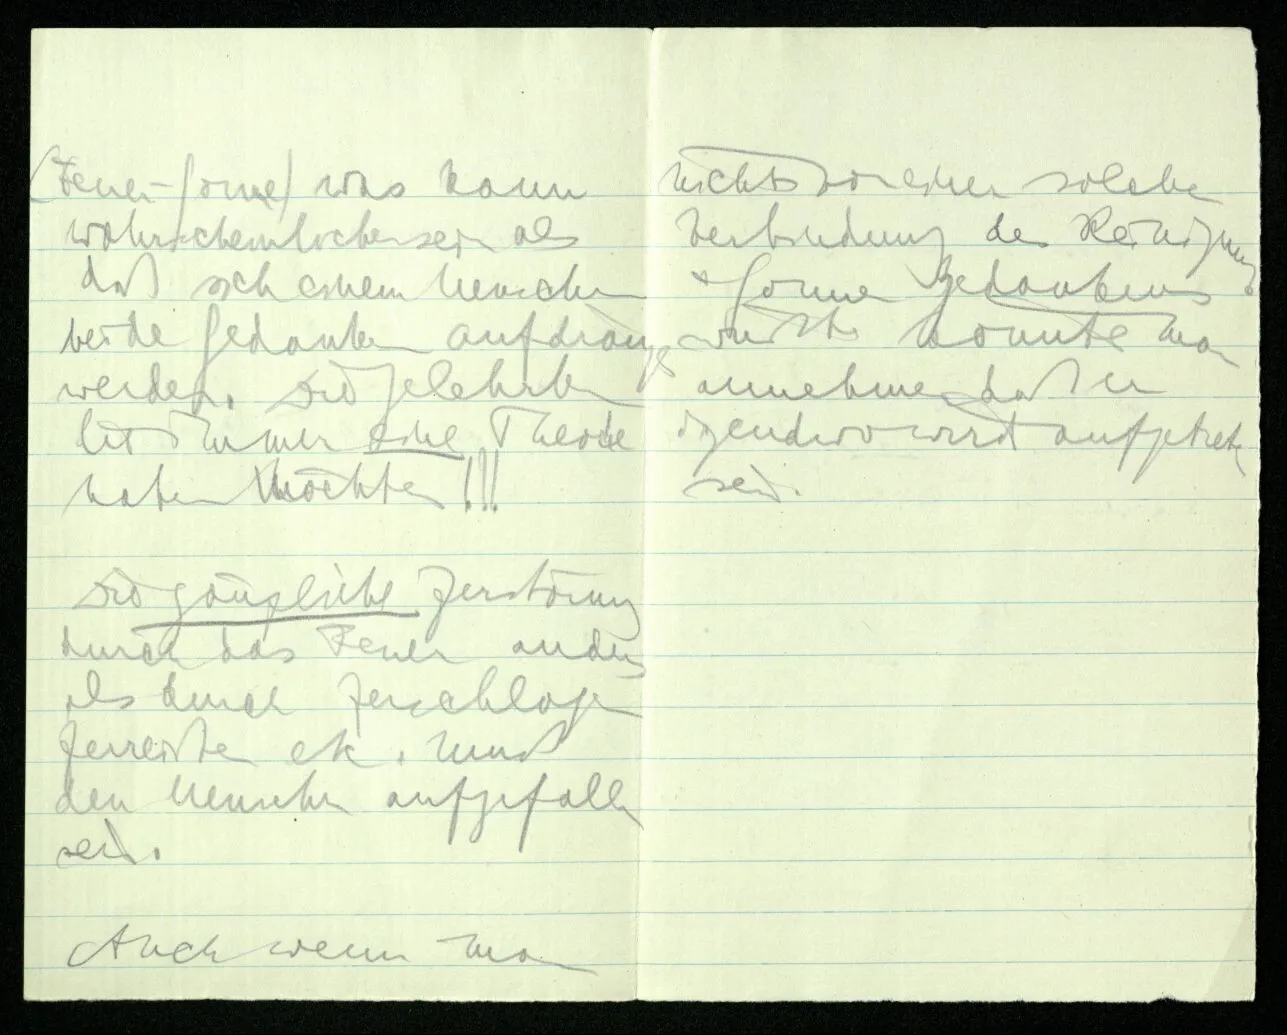 (Feuer-Sonne) was kann
wahrscheinlicher sein als
daß sich einem Menschen
beide Gedanken aufdrängen
werden. Die Gelehrten
die immer eine Theorie
haben möchten!!!
Die gänzliche Zerstörung
durch das Feuer anders
als durch Zerschlagen
Zerreißen etc. muß
den Menschen aufgefallen
sein.
Auch wenn man
nichts von einer solchen
Verbindung des Reinigungs
& Sonne Gedankens
wüßte könnte man
annehmen daß er
irgendwo wird aufgetreten
sein.